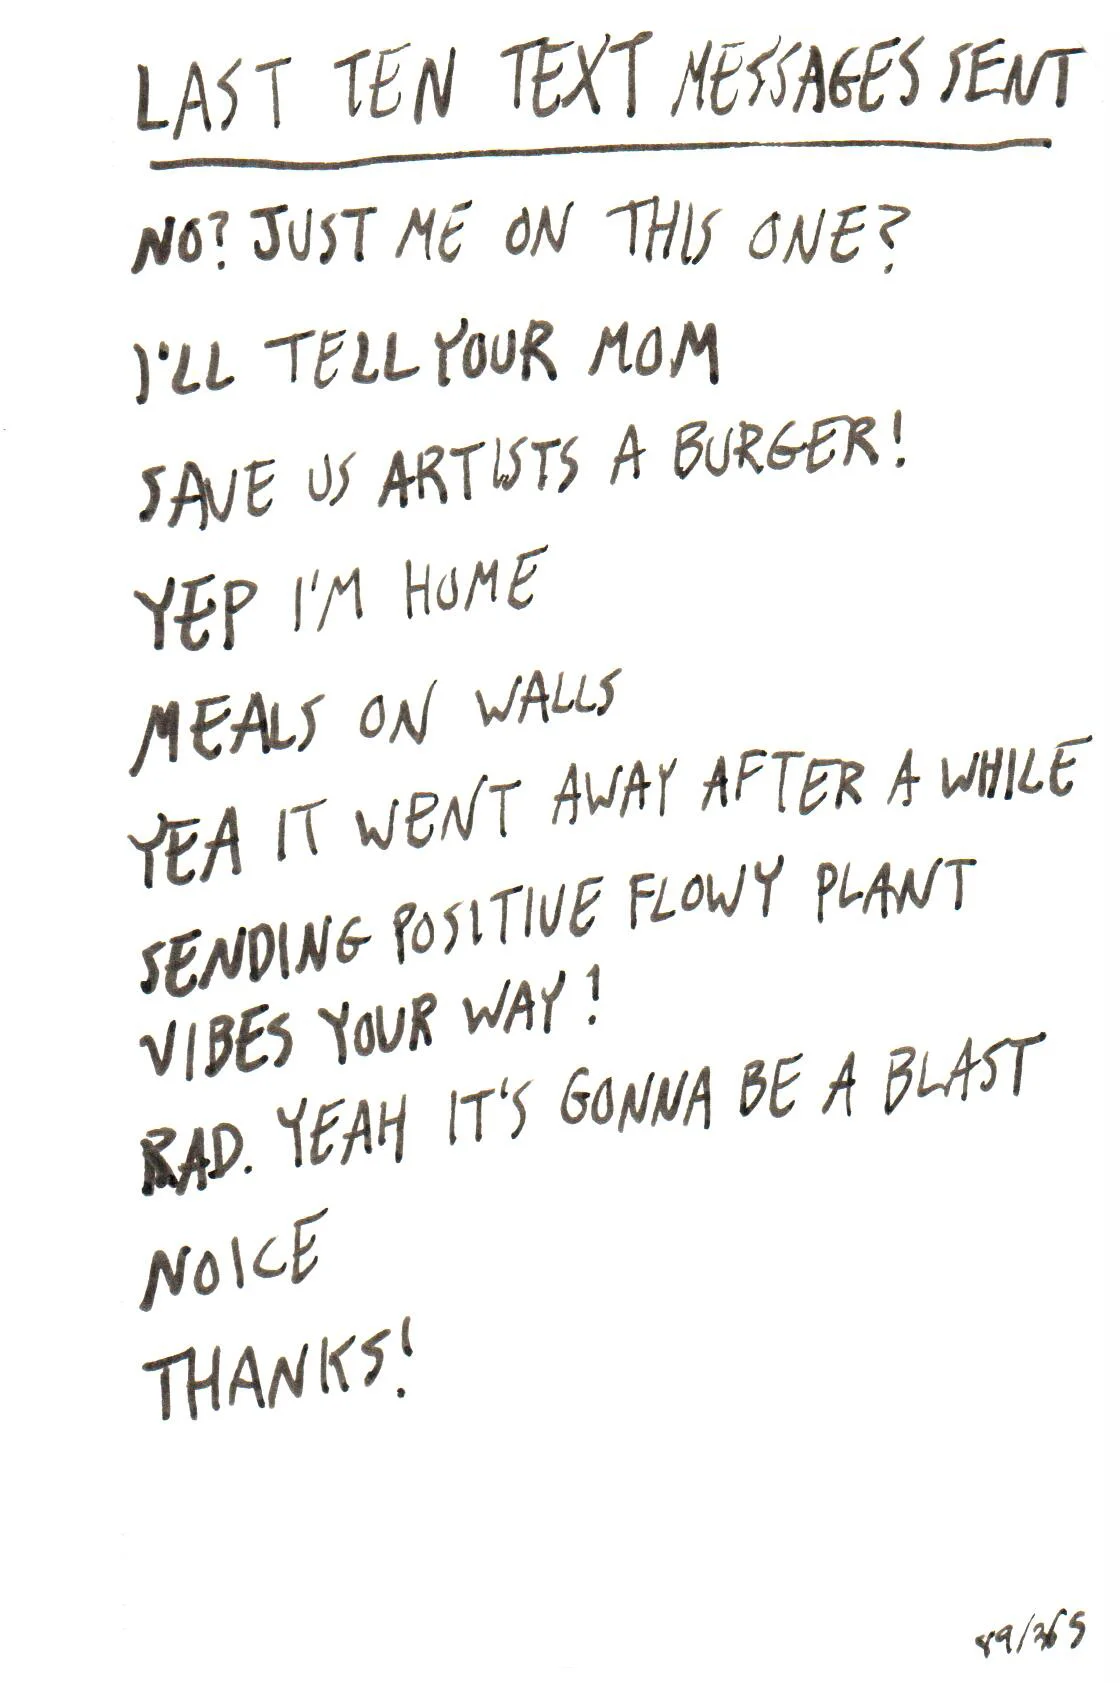 LAST TEN TEXT MESSAGES SENT
NO? JUST ME ON THIS ONE?
I'LL TELL YOUR MOM
SAVE US ARTISTS A BURGER!
YEP I'M HOME
MEALS ON WALLS
YEA IT WENT AWAY AFTER A WHILE
SENDING POSITIVE FLOWY PLANT
VIBES YOUR WAY!
RAD. YEAH IT'S GONNA BE A BLAST
NOICE
THANKS!
89/365